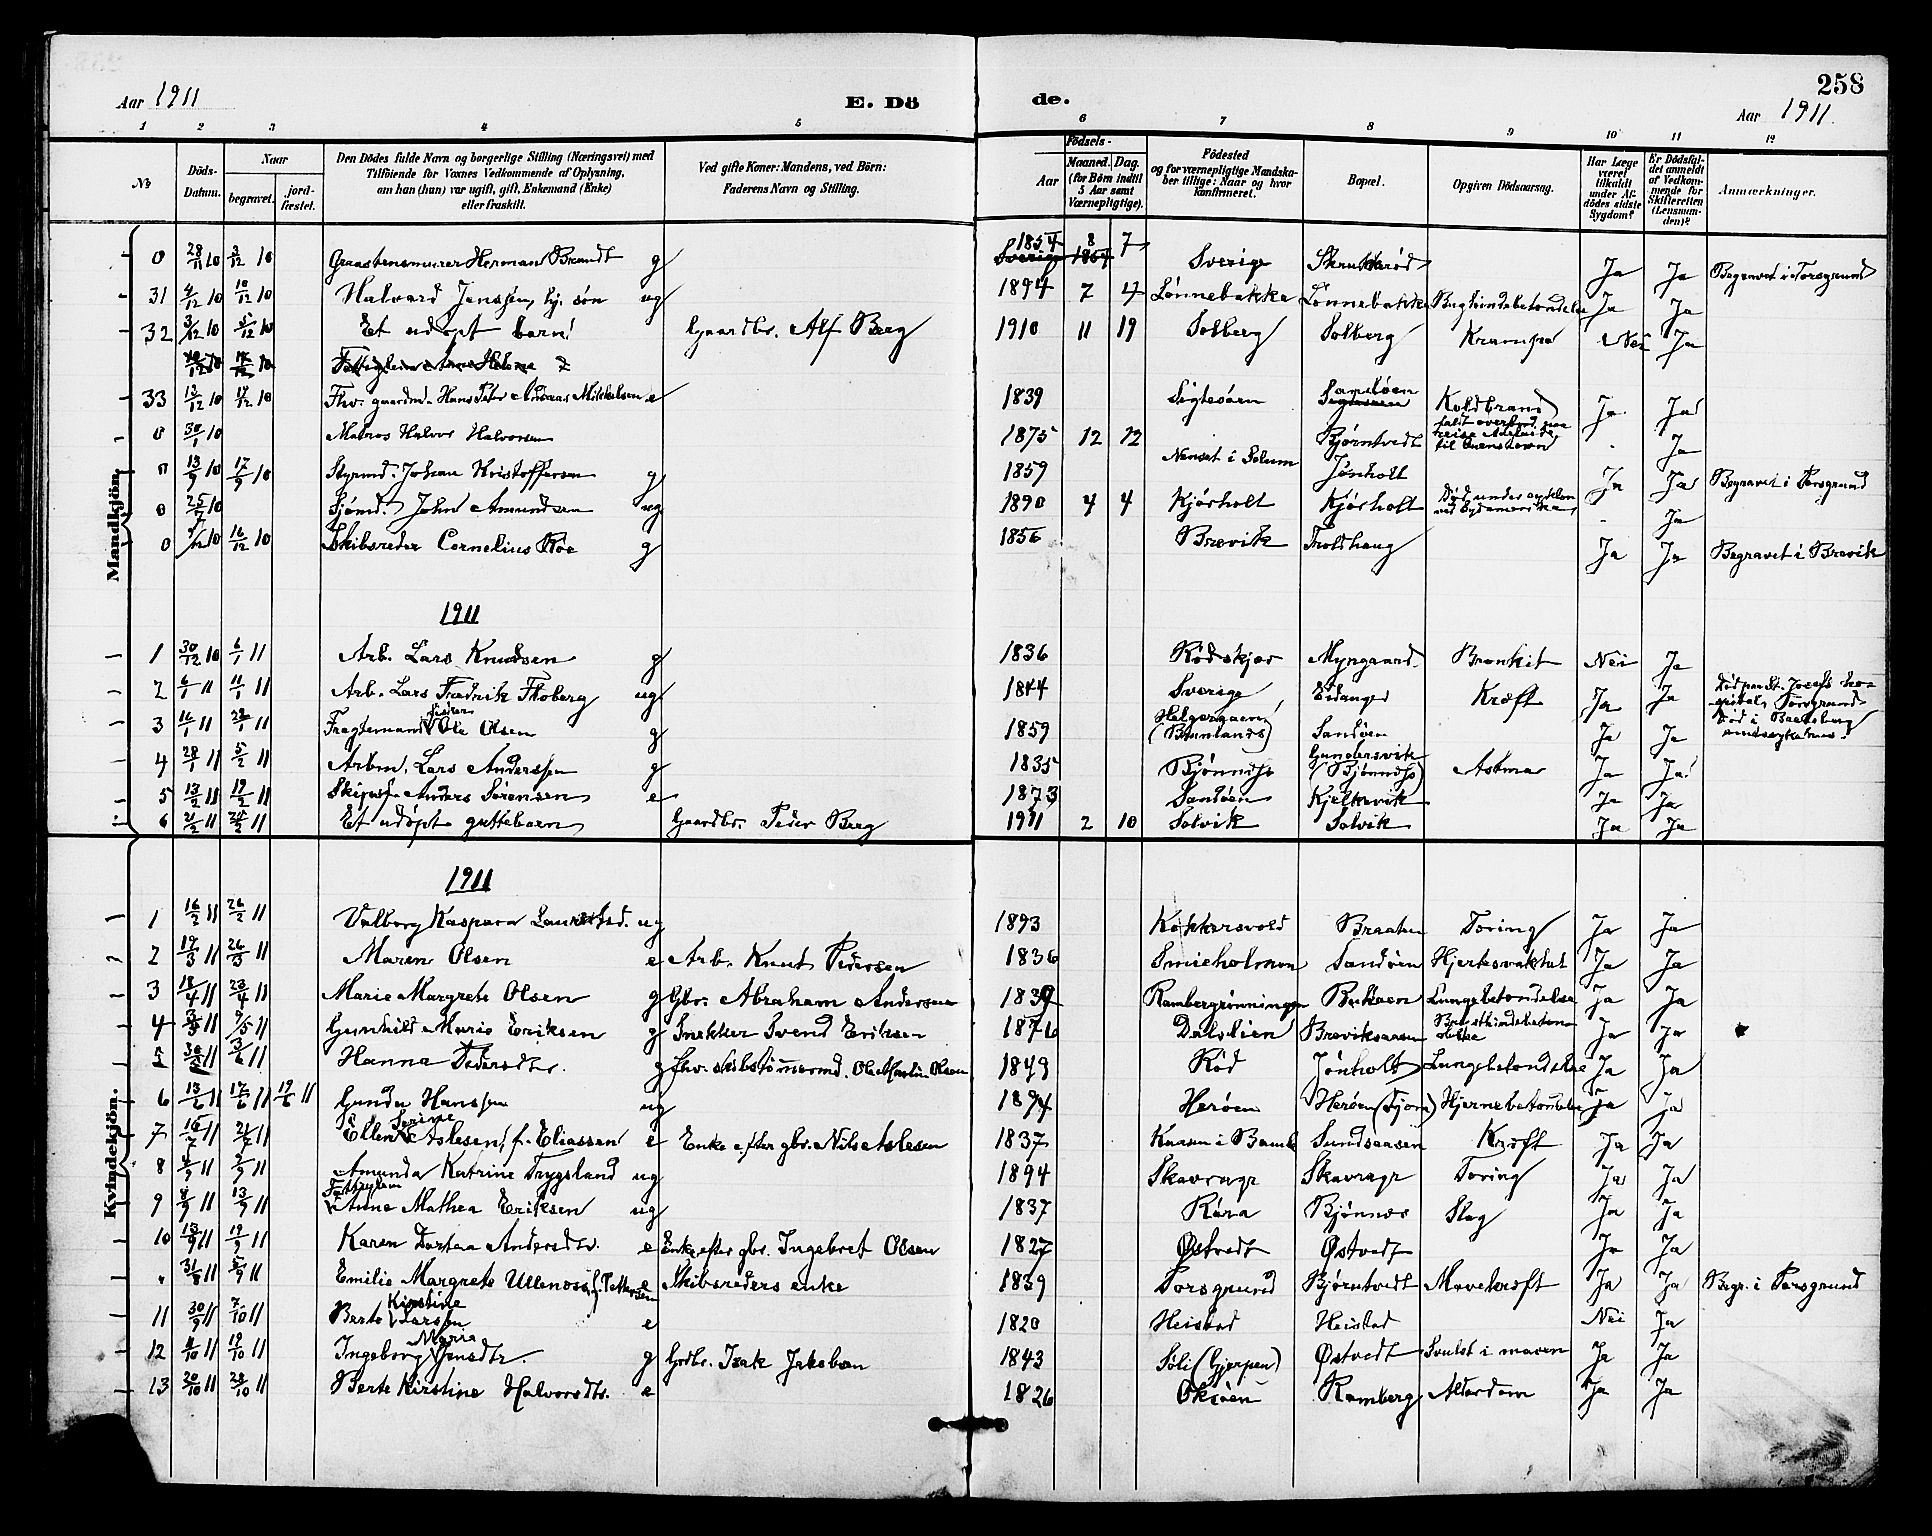 258
Aar 1911
E. Dö
de.
Aar 1911
1 2 3 4 5 6 7 8 9 10 11 12
No
Döds-Datum.
Naar
begravet.
jord-fæstet.
Den Dödes fulde Navn og borgerlige Stilling (Næringsvei) med
Tilföiende for Voxnes Vedkommende af Oplysning,
om han (hun) var ugift, gift, Enkemand (Enke)
eller fraskilt.
Ved gifte Koner: Mandens, ved Börn:
Faderens Navn og Stilling.
Födsels-
Aar
Maaned. Dag.
(for Börn indtil
5 Aar samt
Værnepligtige).
Födested
og for værnepligtige Mandska-
ber tillige: Naar og hvor
konfirmeret.
Bopæl.
Opgiven Dödsaarsag.
Har Læge
været
tilkaldt
under Af-
dödes sidste
Sygdom?
Er Dödsfal-
det anmeldt
af Vedkom-
mende for
Skifteretten
(Lensman-
den)?
Anmærkninger.
Mandkjön.
0 28/11 10 3/12 10 Graastensmurer Herman Brandt g 1854 8 7 Sverige Ja Ja Begravet i Porsgrund
31 4/12 10 10/12 10 Halvard Jenssen, hj. søn ug 1894 7 4 Lønnebakke Lønnebakke Bughindebetændelse Ja Ja
32 3/12 10 5/12 10 Et udøpt barn Gaardbr. Alf Berg 1910 11 19 Solberg Solberg Krampe Nei Ja
33 13/12 10 17/12 10 Fhv. gaardm. Hans Peter Andreas Mikkelsen e 1839 Sigtesøen Sandøen Koldbrand Ja Ja
0 30/1 10 Matros Halvor Halvorsen 1875 12 12 Bjørntvedt faldt overbord paa reise til Queenstown Ja
0 13/9 10 17/9 10 Styrmd. Johan Kristoffersen g 1859 Nenset i Solum Jønholt Ja Ja Begravet i Porsgrund
0 25/7 10 Sjømd. John Amundsen ug 1890 4 4 Kjørholt Kjørholt Død under ved Sydamerika Ja
0 16/12 10 Skibsreder Cornelius Roe g 1856 Brevik Troldhaug Ja Ja Begravet i Brevik
1911
1 30/12 10 6/1 11 Arb. Lars Knudsen g 1836 Rødskjær Myrgaard Bronkit Nei Ja
2 6/1 11 11/1 11 Arb. Lars Fredrik Floberg ug 1844 Sverige Eidanger Kræft Ja Ja Død paa St. Josefs hospital, Porsgrund
3 16/1 11 28/1 11 Fragtemand Peder Ole Olsen g 1859 Helgeroaen (Brunlanes) Sandøen Ja Ja Død i
4 28/1 11 5/2 11 Arbm. Lars Anderssen g 1835 Bjønnæs Gundersvik (Bjønnæs) Astma Ja Ja
5 13/2 11 19/2 11 Skipsf. Anders Sørensen e 1873 Sandøen Kjelkevik Ja Ja
6 21/2 11 24/2 11 Et udøpt guttebarn Gaardbr. Peder Berg 1911 2 10 Solvik Solvik Ja Ja
Kvindekjön.
1911
1 16/2 11 26/2 11 Valborg Kaspara ug 1893 Kokkersvold Braaten Tæring Ja Ja
2 19/3 11 26/3 11 Maren Olsen e Arb. Knut Pedersen 1836 Smieholmen Sandøen Hjertesvakhet Ja Ja
3 18/4 11 23/4 11 Marie Margrete Olsen g Gbr. Abraham Andersen 1839 Rambergrønningen Bukaen Lungebetændelse Ja Ja
4 3/5 11 9/5 11 Gunhild Marie Eriksen g Snekker Svend Eriksen 1876 Dalslien Breviksaasen Brysthindebetændelse Ja Ja
5 Hanna Pedersdtr. g fhv. skibstømmermd. Ole Martin Olsen 1849 Rød Jønholt Lungebetændelse Ja Ja
6 13/6 11 17/6 11 19/6 11 Gunda Hanssen ug 1894 Herøen Herøen (Fjone) Hjernebetændelse Ja Ja
7 16/7 11 21/7 11 Ellen Serine Aslesen, f. Eliassen e Enke efter gbr. Nils Aslesen 1837 Kaasen i Bamle Sundsaasen Kræft Ja Ja
8 4/9 11 9/9 11 Amunda Katrine Trygsland ug 1894 Skavrager Skavrager Tæring Ja Ja
9 8/9 11 13/9 11 Fattiglem Anne Mathea Eriksen ug 1837 Røra Bjønnæs Slag Ja Ja
10 13/9 11 19/9 11 Karen Dortea Andersdtr. e Enke efter gbr. Ingebret Olsen 1827 Østvedt Østvedt Ja Ja
31/8 11 5/9 11 Emilie Margrete Ullenoss, f. Pettersen e Skibsreders enke 1839 Porsgrund Bjørntvedt Mavekræft Ja Ja Begr. i Porsgrund
11 30/9 11 7/10 11 Berte Kirstine Larsen e 1820 Heistad Heistad Nei Ja
12 8/10 11 19/10 11 Ingeborg Maria Jensdtr. g Grdbr. Isak Jakobsen 1843 Søli (Gjerpen) Østvedt Svulst i maven Ja Ja
13 20/10 11 28/10 11 Berte Kirstine Halvorsdtr. e 1826 Oksøen Ramberg Alderdom Ja Ja